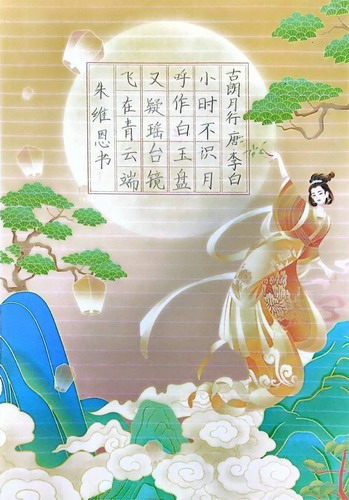 古朗月行 唐 李白
小时不识月
呼作白玉盘
又疑瑶台镜
飞在青云端
朱维恩书